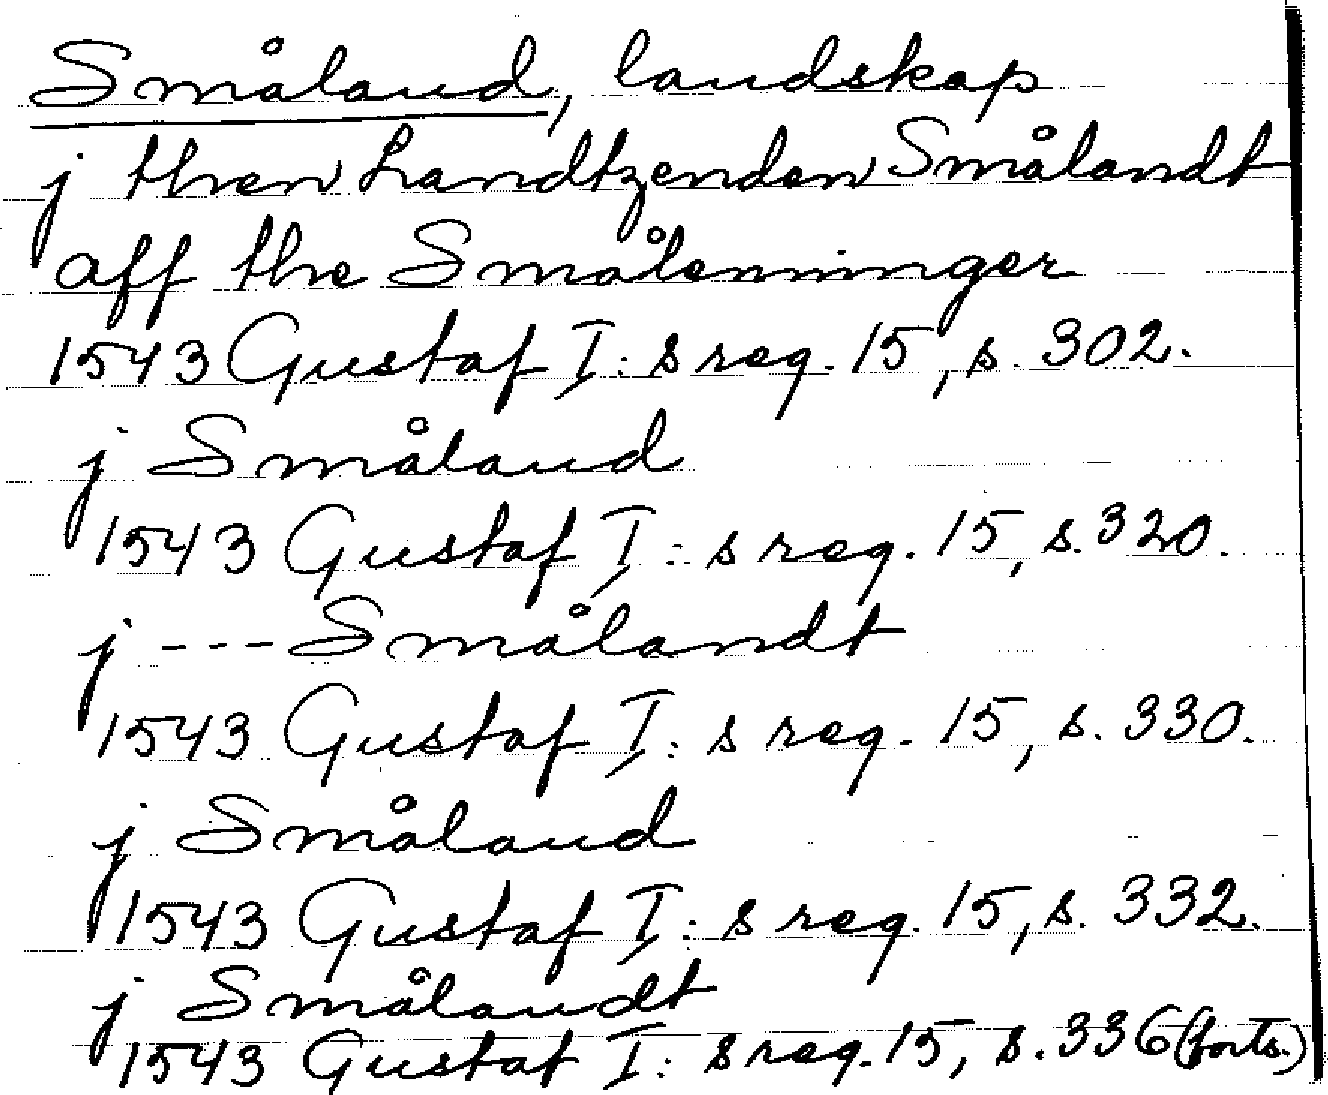 Småland, landskap
j then Landtzenden Smålandt
aff the Smålenninger
1543 Gustaf I:s reg. 15, s. 302.
j Småland
1543 Gustaf I:s reg. 15, s. 320.
j --- Smålandt
1543 Gustaf I:s reg. 15, s. 330.
j Småland
1543 Gustaf I:s reg. 15, s. 332.
j Smålandt
1543 Gustaf I:s reg. 15, s. 336 (forts.)